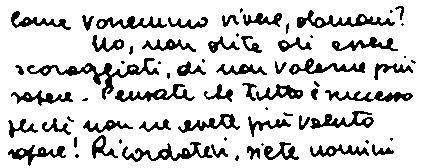 come vorremmo vivere, domani?
No, non dite di essere
scoraggiati, di non volerne più
sapere. Pensate che tutto è successo
perché non ne avete più voluto
sapere! Ricordatevi, siete uomini